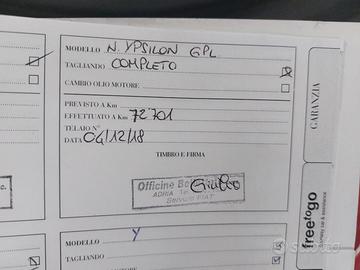 MODELLO N. YPSILON GPL
TAGLIANDO COMPLETO
CAMBIO OLIO MOTORE
PREVISTO A Km
EFFETTUATO A Km 72701
TELAIO N°
DATA 04/12/18
TIMBRO E FIRMA
Officine
ADRIA
Servizio FIAT
GARANZIA
freetogo
MODELLO Y
TAGLIANDO
CAMBIO OLIO MOTORE